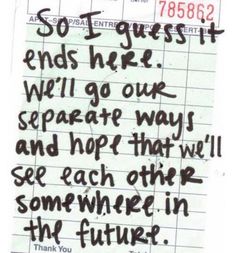 785862
So I guess it
ends here.
We'll go our
separate ways
and hope that we'll
see each other
somewhere in
the future.
Thank You